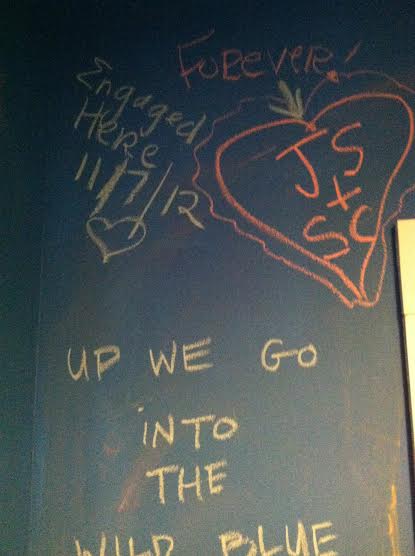 Forever!
Engaged
Here
11/7/12
JS
+
SC
UP WE GO
iNTO
THE
WILD BLUE